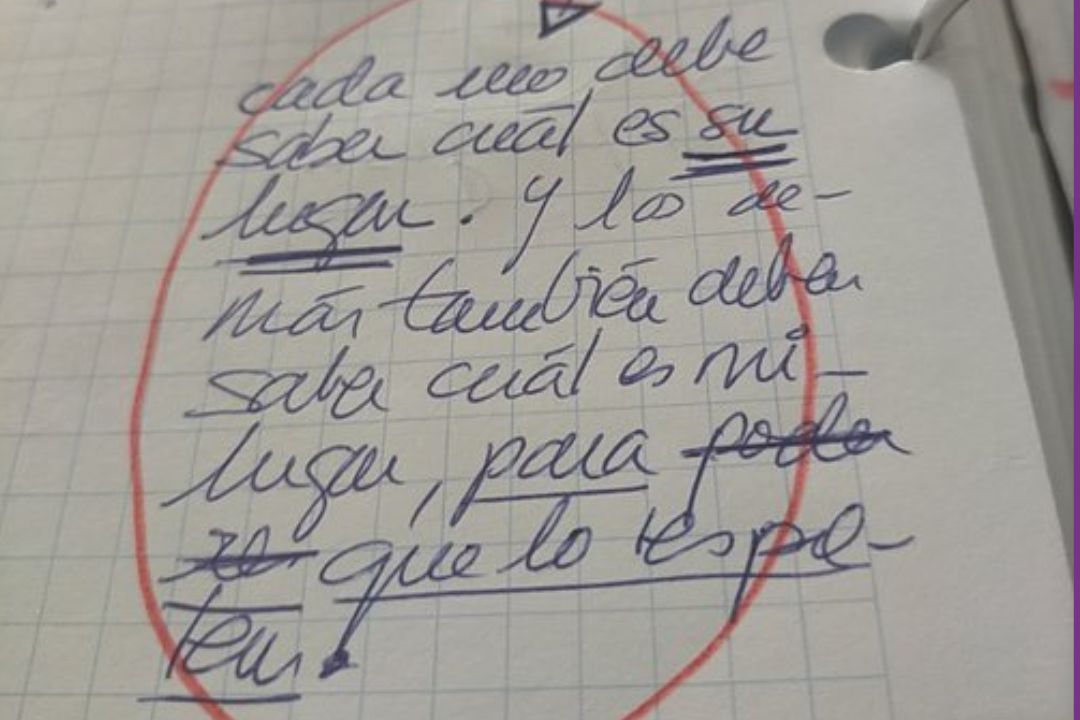 cada uno debe
saber cuál es su
lugar. Y los de-
más también deben
saber cuál es mi
lugar, para poder
que lo respe-
ten.